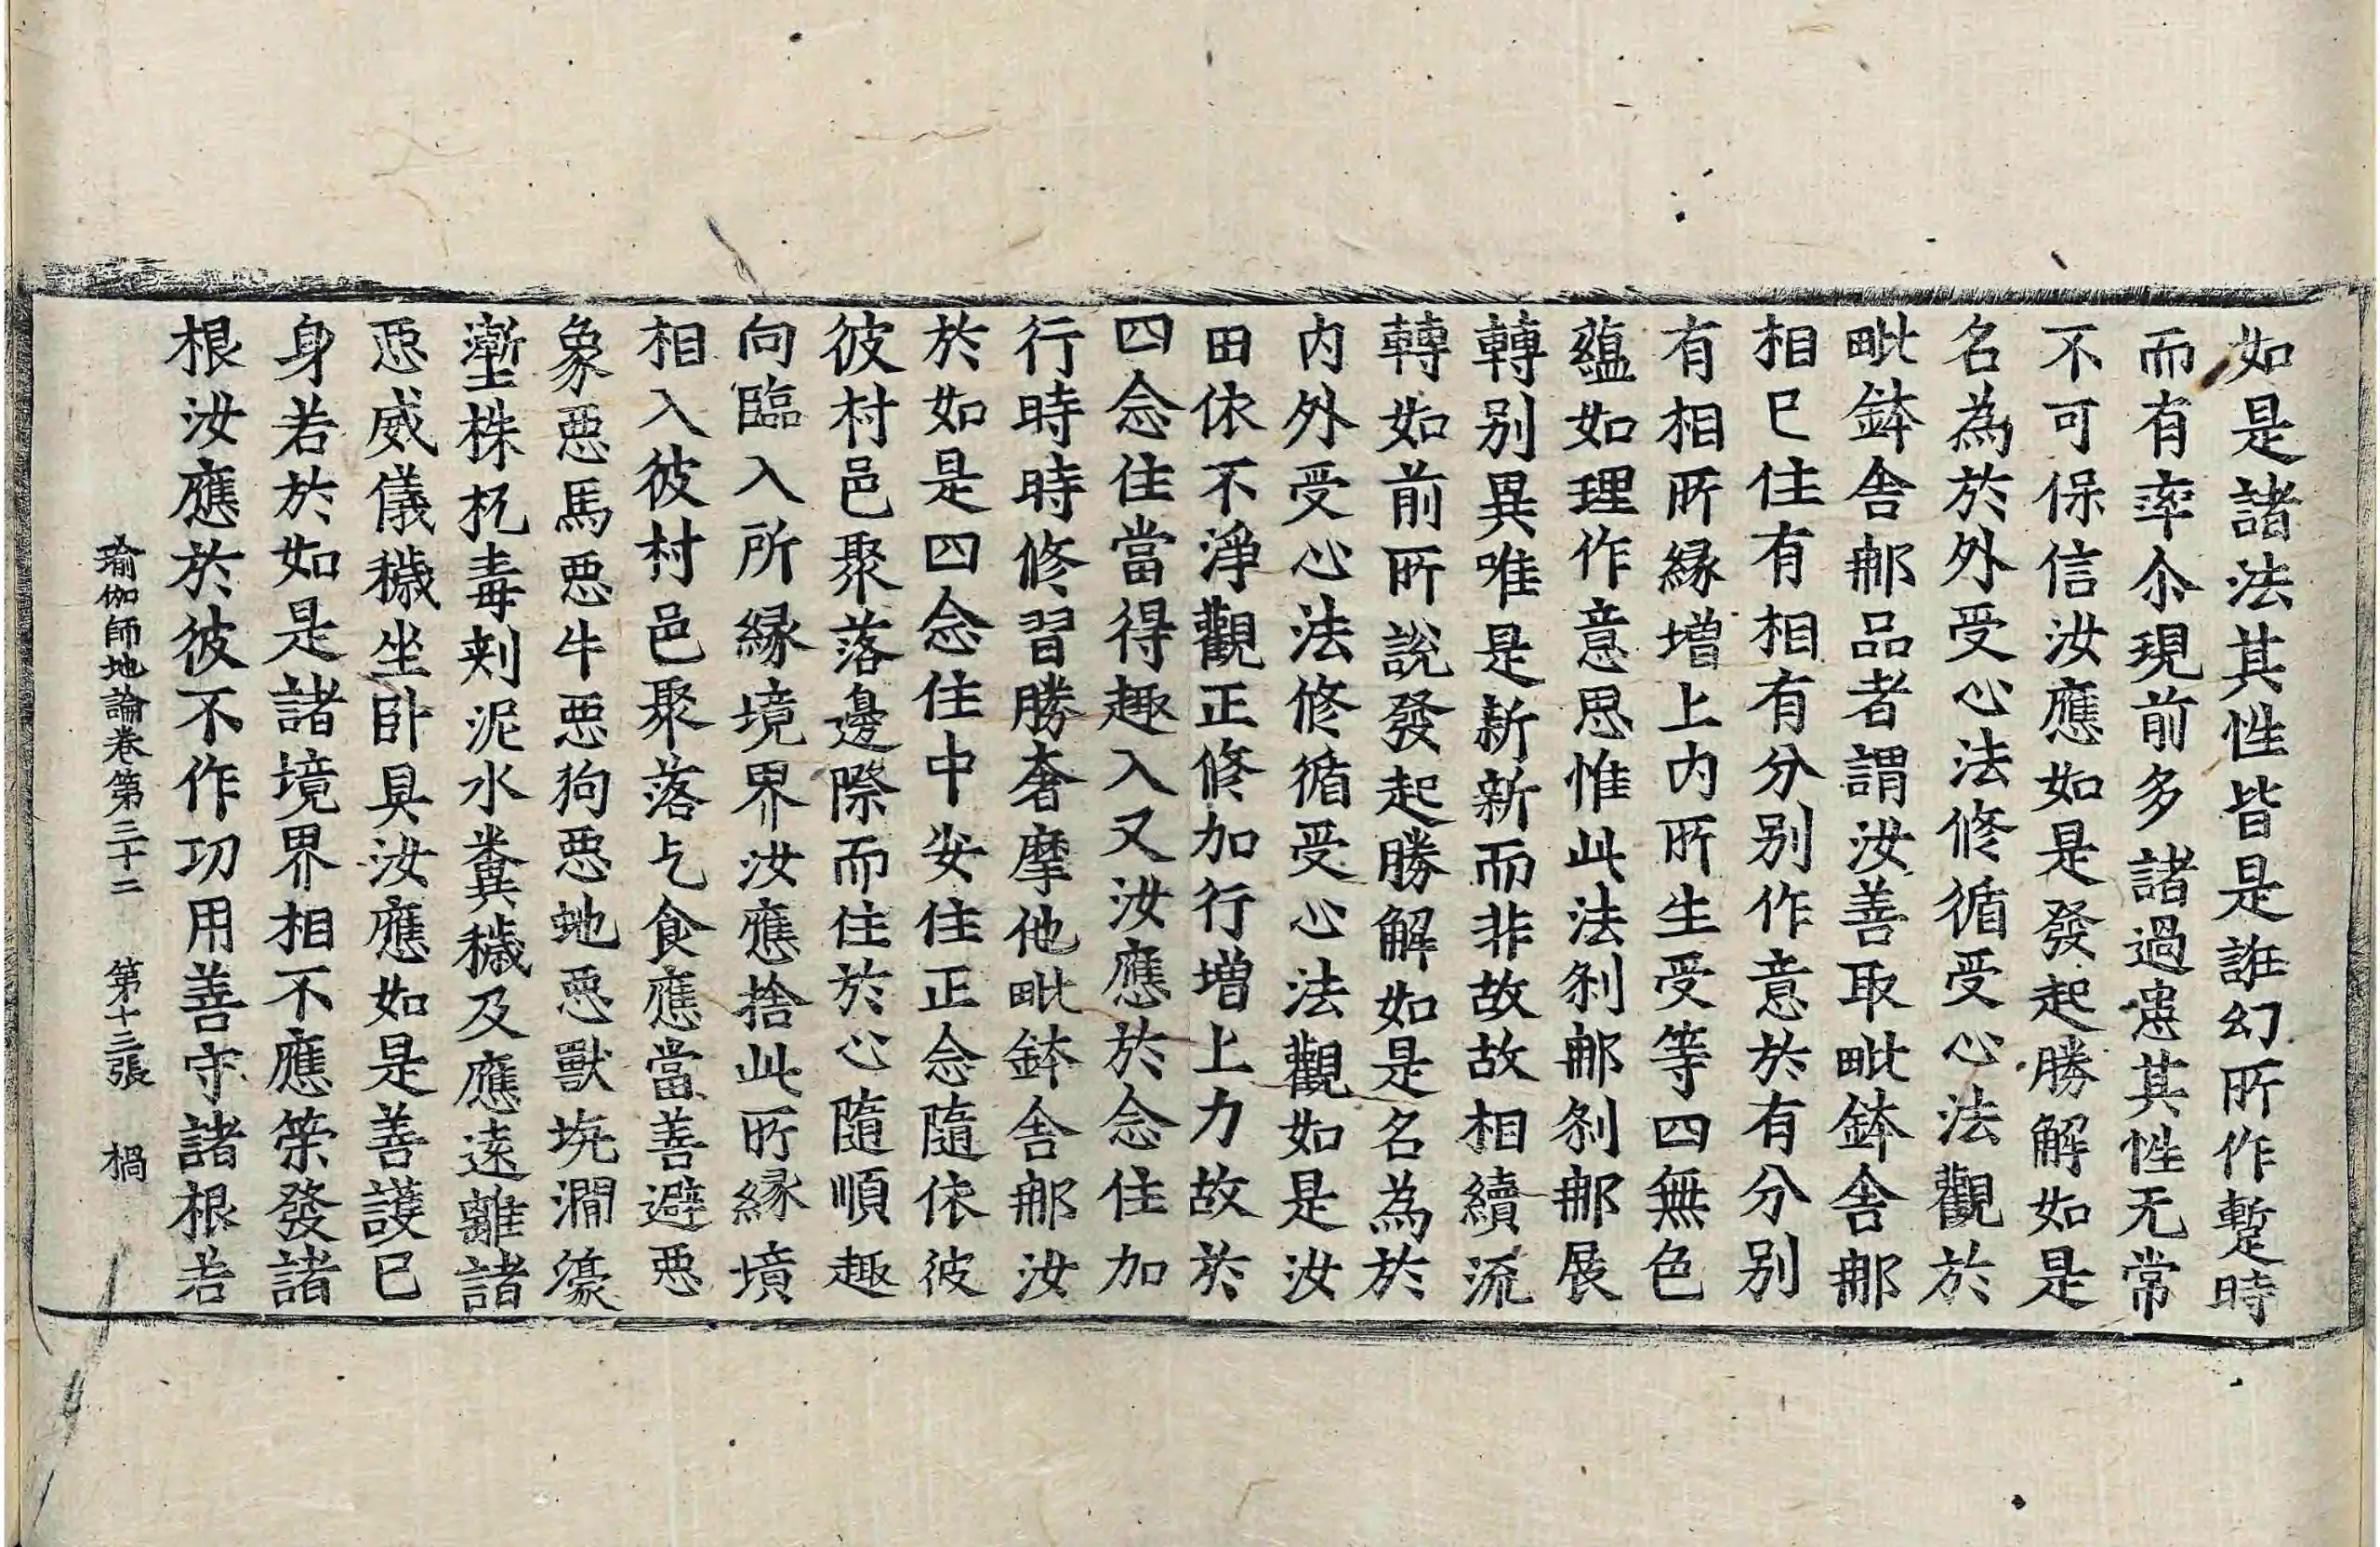 如是諸法其性皆是誑幻所作蹔時
而有率尒現前多諸過患其性无常
不可保信汝應如是發起勝解如是
名為於外受心法修循受心法觀於
毗鉢舍那品者謂汝善取毗鉢舍那
相已住有相有分別作意於有分別
有相所緣增上內所生受等四無色
蘊如理作意思惟此法剎那剎那展
轉別異唯是新新而非故故相續流
轉如前所說發起勝解如是名為於
內外受心法修循受心法觀如是汝
田依不淨觀正修加行增上力故於
四念住當得趣入又汝應於念住加
行時時修習勝奢摩他毗鉢舍那汝
於如是四念住中安住正念隨依彼
彼村邑聚落邊際而住於心隨順趣
向臨入所緣境界汝應捨此所緣境
相入彼村邑聚落乞食應當善避惡
象惡馬惡牛惡狗惡虵惡獸坑澗濠
壍株杌毒刾泥水糞穢及應遠離諸
惡威儀穢坐卧具汝應如是善護已
身若於如是諸境界相不應策發諸
根汝應於彼不作功用善守諸根若
瑜伽師地論卷第三十二 第十三張 禍